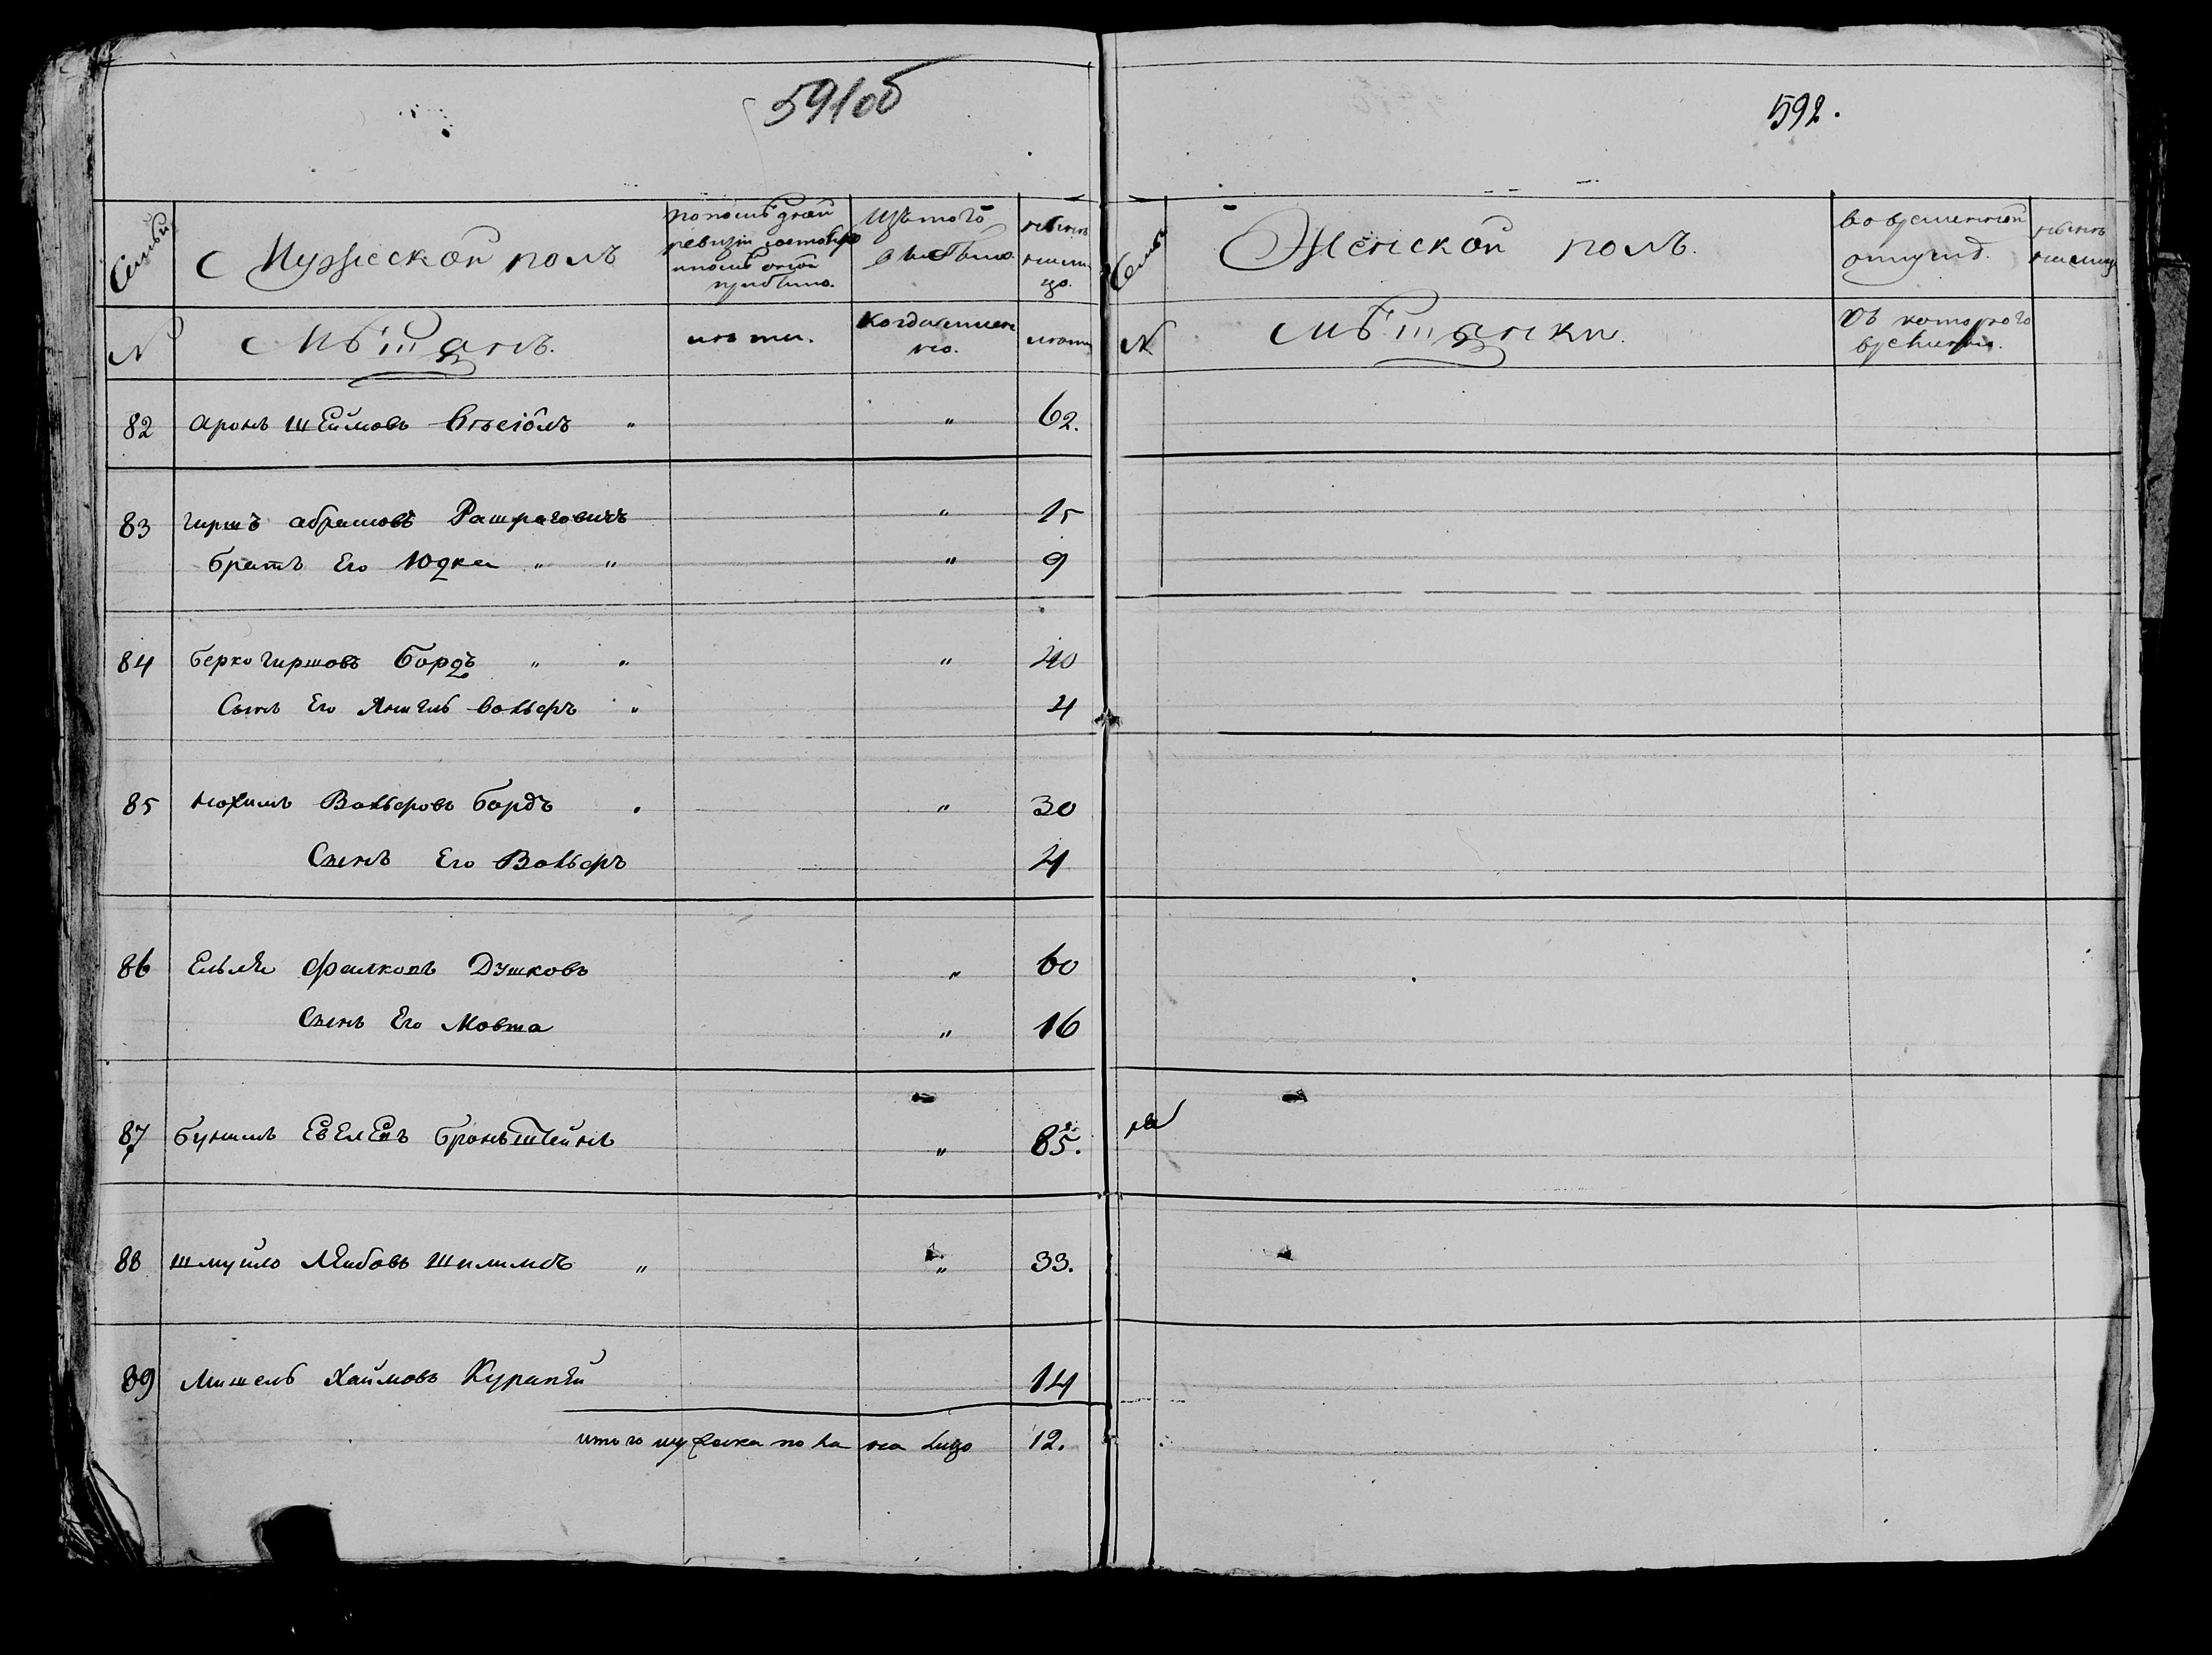 591об
Семьи
Мужеской полъ
по послѣдней
ревизіи состояло
и послѣ оной
прибыло.
Изъ того
выбыло
нынѣ
на ли
цо.
№
Мѣщанъ.
лѣты.
Когда именно.
лѣты
82 Аронъ Шеймовъ " " 62.
83 Гиршъ Абрамовъ Рашраговичъ " 15
братъ Его Юдка " " " 9
84 Берко Гиршовъ Бордъ " " " 40
Сынъ Его Аншель Вольфъ " 4
85 Нохимъ Вольфовъ Бордъ " " 30
Сынъ Его Вольфъ 4
86 Фалковъ Душковъ " 60
Сынъ Его Мовша " 16
87 Бунимъ Бронштейнъ " 85.
88 Шмуйло Лейбовъ " " 33.
89 Хаимовъ 14
итого мужеска пола на лицо 12.
592.
Семьи
Женской полъ.
во временной
отлучкѣ.
нынѣ
на лицо
№
Мѣщанки.
Съ которого
времени.